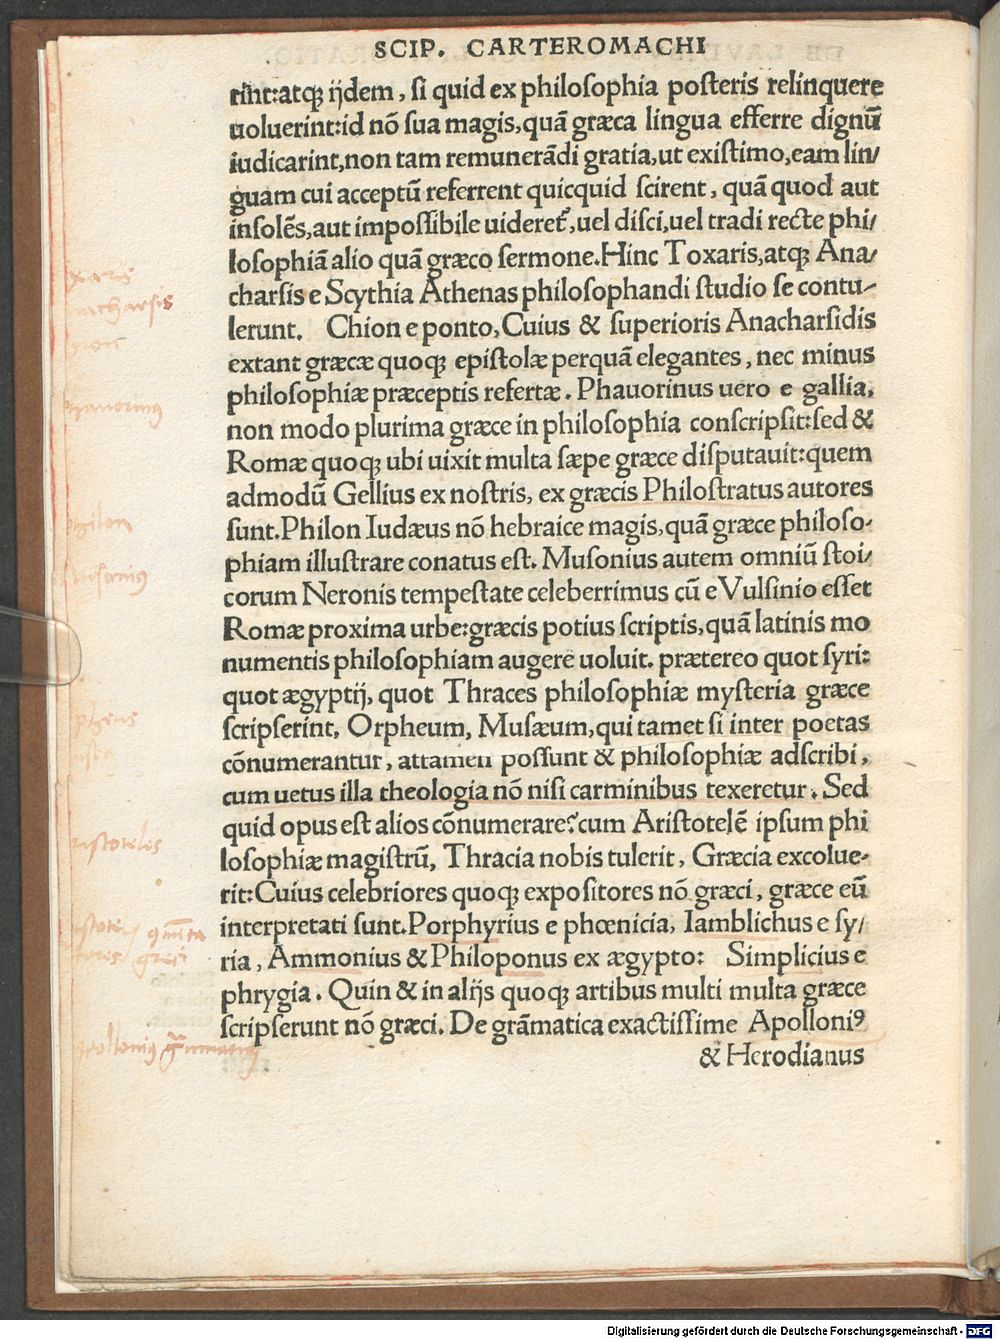 SCIP. CARTEROMACHI
rint:atq; ijdem, si quid ex philosophia posteris relinquere
uoluerint:id nō sua magis, quā græca lingua efferre dignū
iudicarint, non tam remunerādi gratia, ut existimo, eam lin/
guam cui acceptū referrent quicquid scirent, quā quod aut
insolēs, aut impossibile uideret᷑, uel disci, uel tradi recte phi/
losophiā alio quā græco sermone. Hinc Toxaris, atq; Ana/
charsis e Scythia Athenas philosophandi studio se contu-
lerunt. Chion e ponto, Cuius & superioris Anacharsidis
extant græcæ quoq; epistolæ perquā elegantes, nec minus
philosophiæ præceptis refertæ. Phauorinus uero e gallia,
non modo plurima græce in philosophia conscripsit: sed &
Romæ quoq; ubi uixit multa sæpe græce disputauit: quem
admodū Gellius ex nostris, ex græcis Philostratus autores
sunt. Philon Iudæus nō hebraice magis, quā græce philoso-
phiam illustrare conatus est. Musonius autem omniū stoi/
corum Neronis tempestate celeberrimus cū e Vulsinio esset
Romæ proxima urbe: græcis potius scriptis, quā latinis mo
numentis philosophiam augere uoluit. prætereo quot syri:
quot ægyptij, quot Thraces philosophiæ mysteria græce
scripserint, Orpheum, Musæum, qui tamet si inter poetas
cōnumerantur, attamen possunt & philosophiæ adscribi,
cum uetus illa theologia nō nisi carminibus texeretur. Sed
quid opus est alios cōnumerare? cum Aristotelē ipsum phi
losophiæ magistrū, Thracia nobis tulerit, Græcia excolue-
rit: Cuius celebriores quoq; expositores nō græci, græce eū
interpretati sunt. Porphyrius e phœnicia, Iamblichus e sy/
ria, Ammonius & Philoponus ex ægypto: Simplicius e
phrygia. Quin & in alijs quoq; artibus multi multa græce
scripserunt nō græci. De grāmatica exactissime Apolloniꝰ
& Herodianus
Digitalisierung gefördert durch die Deutsche Forschungsgemeinschaft - DFG